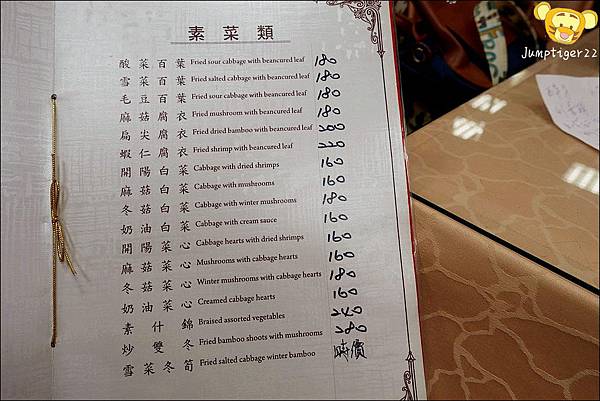 素菜類
酸菜百葉 Fried sour cabbage with beancured leaf 180
雪菜百葉 Fried salted cabbage with beancured leaf 180
毛豆百葉 Fried sour cabbage with beancured leaf 180
麻菇腐衣 Fried mushroom with beancured leaf 180
扁尖腐衣 Fried dried bamboo with beancured leaf 200
蝦仁腐衣 Fried shrimp with beancured leaf 220
開陽白菜 Cabbage with dried shrimps 160
麻菇白菜 Cabbage with mushrooms 160
冬菇白菜 Cabbage with winter mushrooms 180
奶油白菜 Cabbage with cream sauce 160
開陽菜心 Cabbage hearts with dried shrimps 160
麻菇菜心 Mushrooms with cabbage hearts 160
冬菇菜心 Winter mushrooms with cabbage hearts 180
奶油菜心 Creamed cabbage hearts 160
素什錦 Braised assorted vegetables 240
炒雙冬 Fried bamboo shoots with mushrooms 280
雪菜冬筍 Fried salted cabbage winter bamboo 時價
Jumptiger22